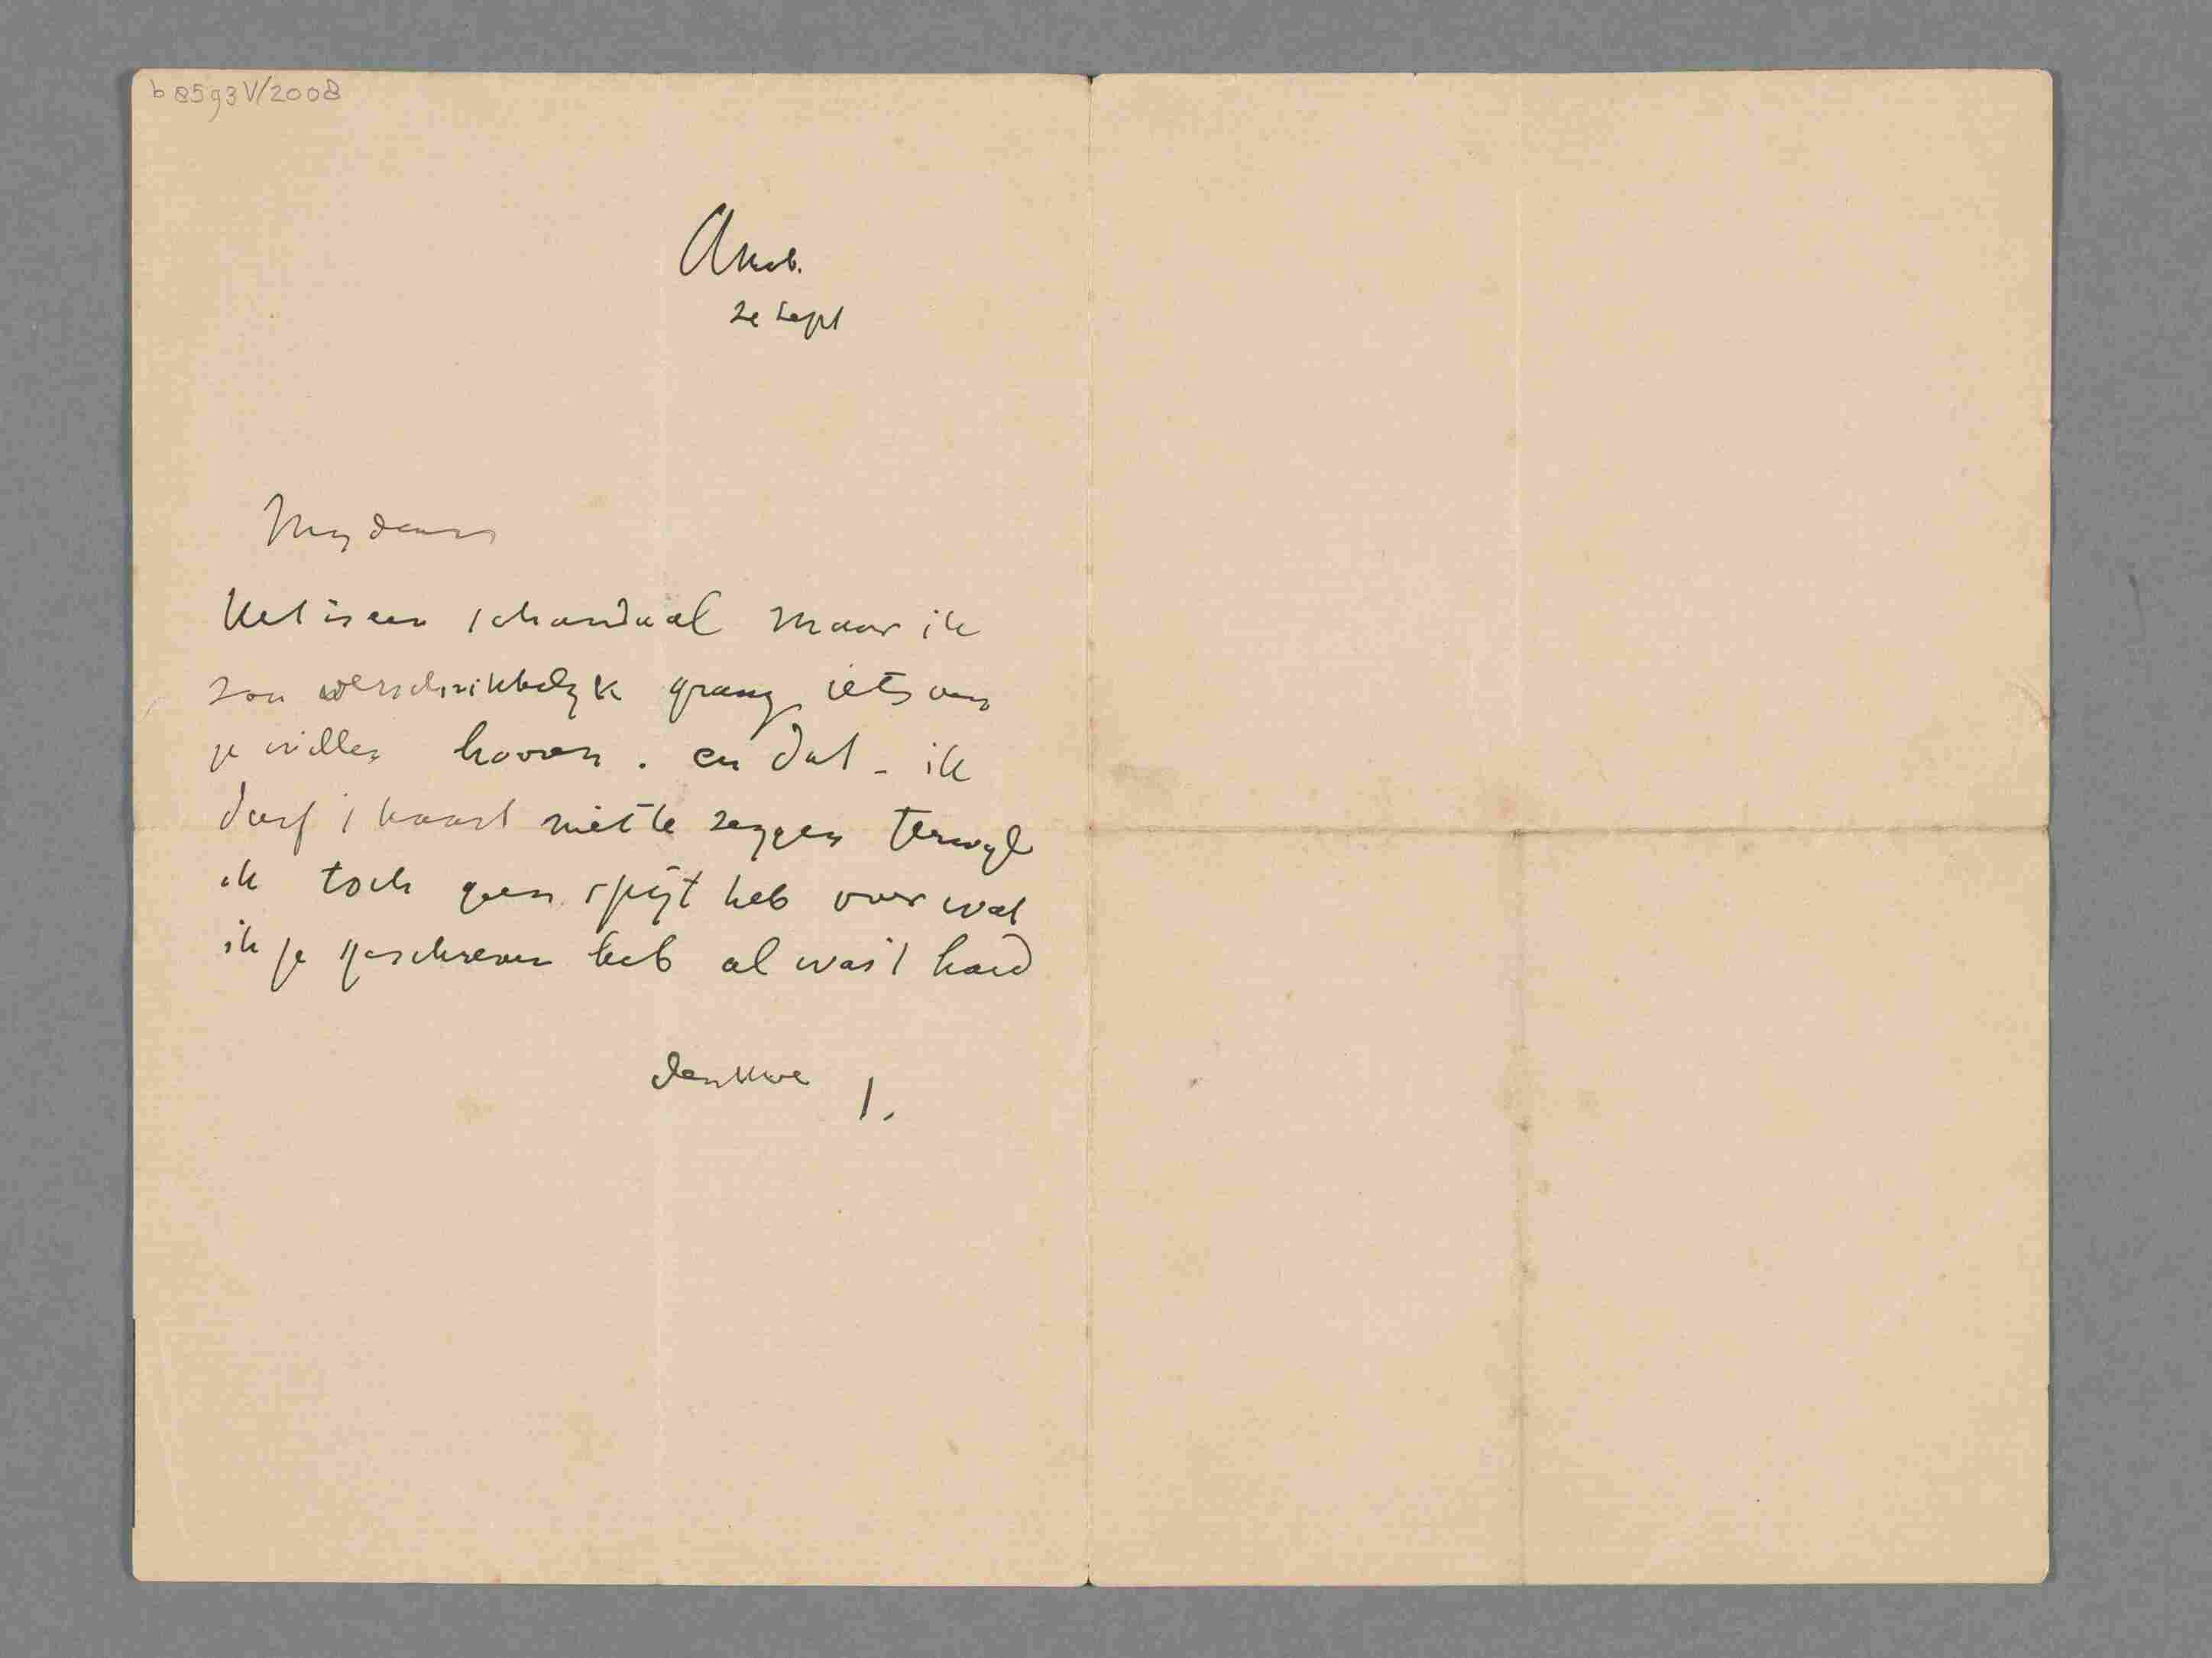 b 8593 V/2008
Amst.
2e Sept
Het is een schandaal maar ik
zou verschrikkelijk graag iets van
je willen hooren. en dat - ik
durf 't haast niet te zeggen terwijl
ik toch geen spijt heb over wat
ik je geschreven heb al was 't hard